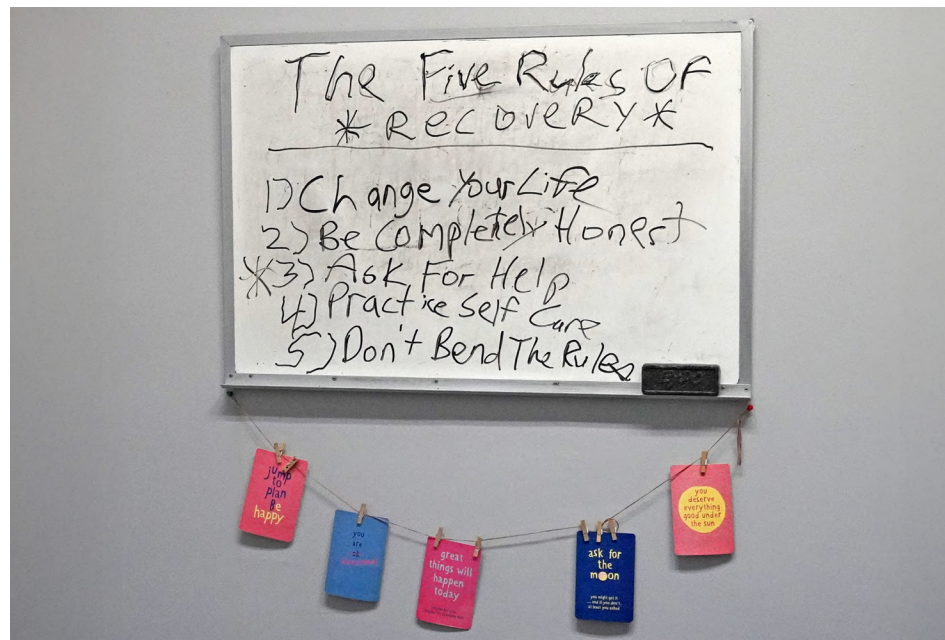 The Five Rules Of
* RECOVERY *
1) Change Your Life
2) Be Completely Honest
*3) Ask For Help
4) Practice Self Care
5) Don't Bend The Rules
EXPO
jump
to
plan
Be
happy
you
are
great
things will
happen
today
ask for
the
moon
you might get it
... and if you don't,
at least you asked
you
deserve
everything
good under
the sun